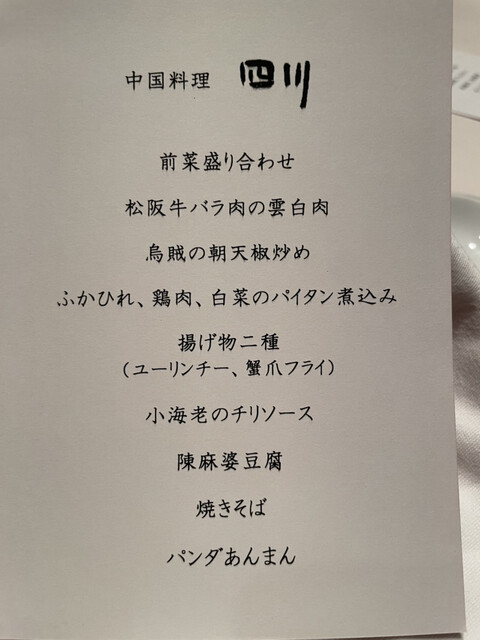 中国料理 四川
前菜盛り合わせ
松阪牛バラ肉の雲白肉
烏賊の朝天椒炒め
ふかひれ、鶏肉、白菜のパイタン煮込み
揚げ物二種
（ユーリンチー、蟹爪フライ）
小海老のチリソース
陳麻婆豆腐
焼きそば
パンダあんまん